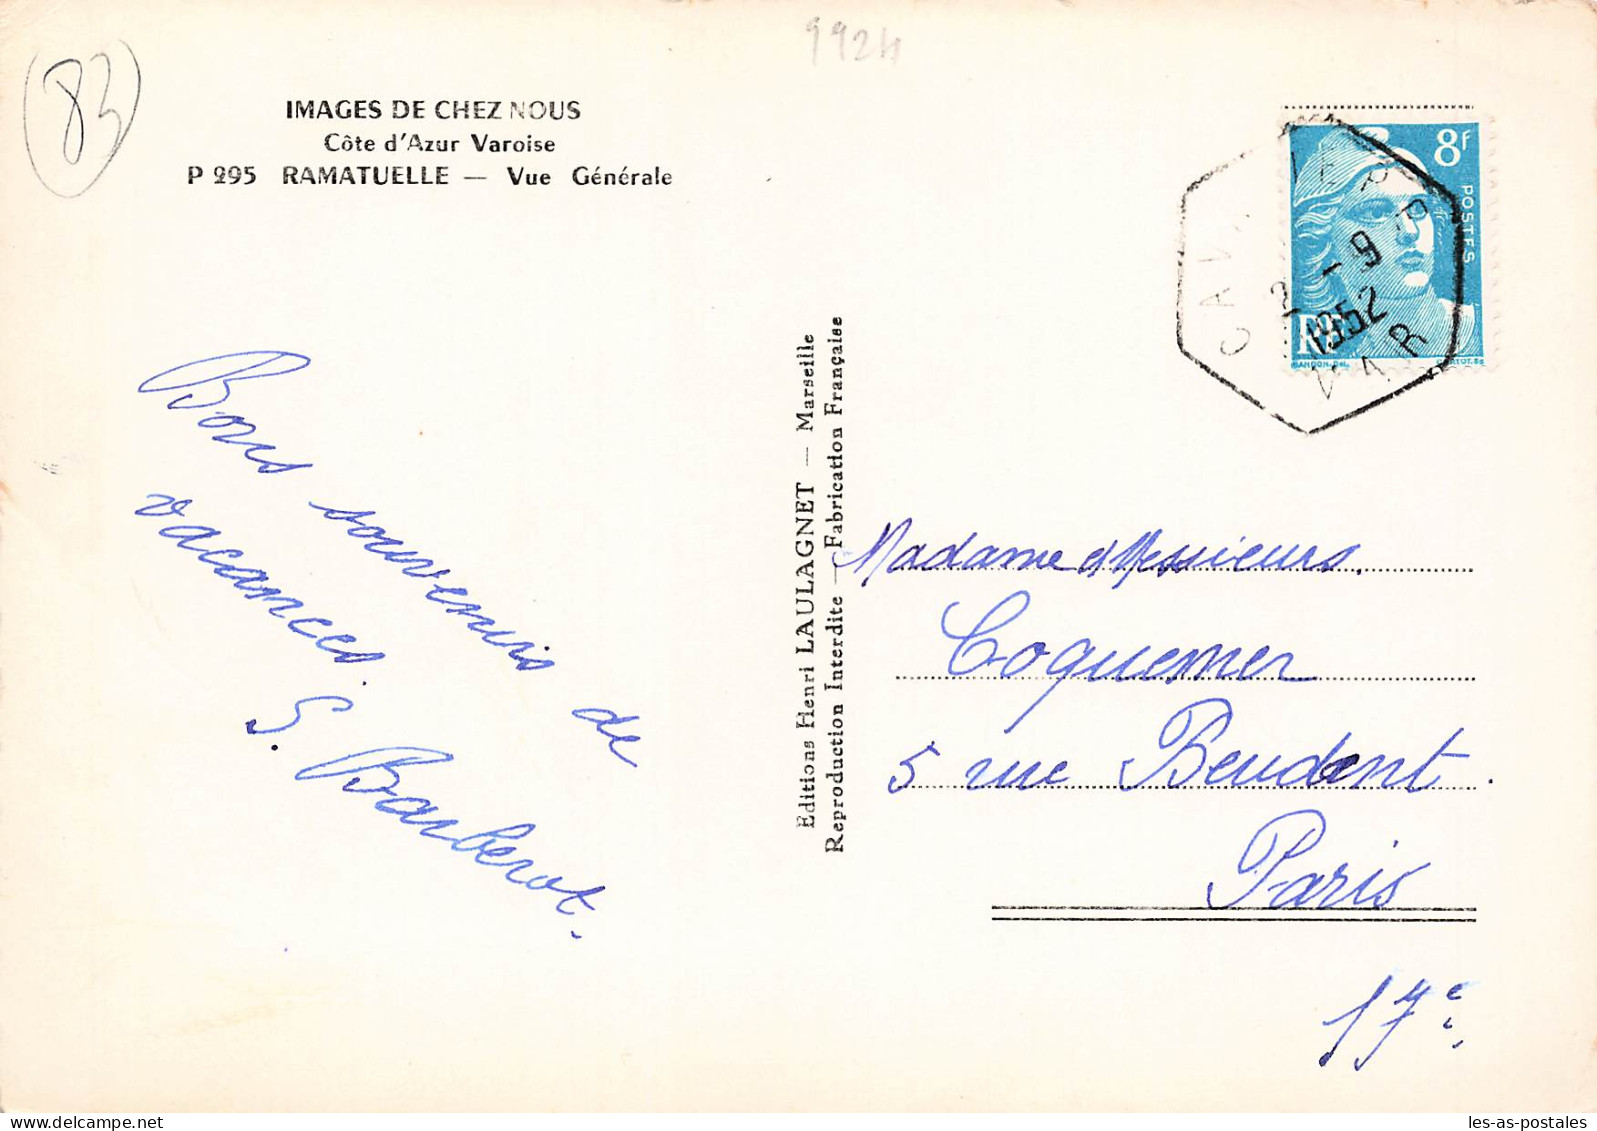 83
9924
IMAGES DE CHEZ NOUS
Côte d'Azur Varoise
P 295 RAMATUELLE — Vue Générale
Bons souvenirs de
vacances.
S. Barberot.
Editions Henri LAULAGNET — Marseille
Reproduction Interdite — Fabrication Française
8f
POSTES
RF
2 -9
1952
VAR
Madame & Messieurs.
Coquemer
5 rue Beudant.
Paris
17e
les-as-postales